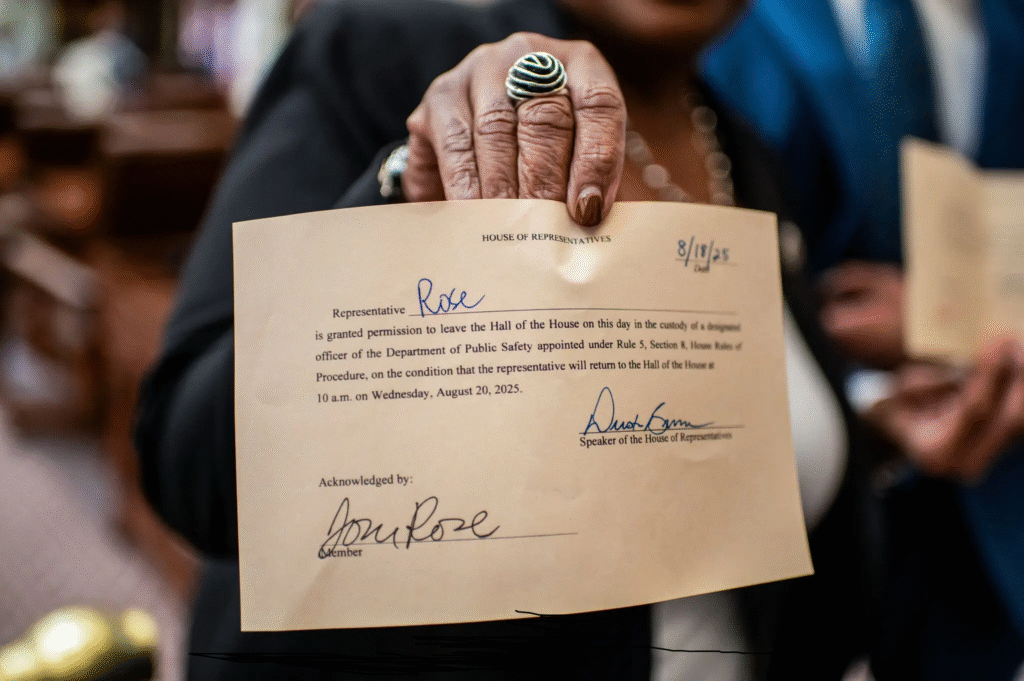 HOUSE OF REPRESENTATIVES
8/18/25
Representative Rose
is granted permission to leave the Hall of the House on this day in the custody of a designated
officer of the Department of Public Safety appointed under Rule 5, Section 8, House Rules of
Procedure, on the condition that the representative will return to the Hall of the House at
10 a.m. on Wednesday, August 20, 2025.
Speaker of the House of Representatives
Acknowledged by:
Rose
Member